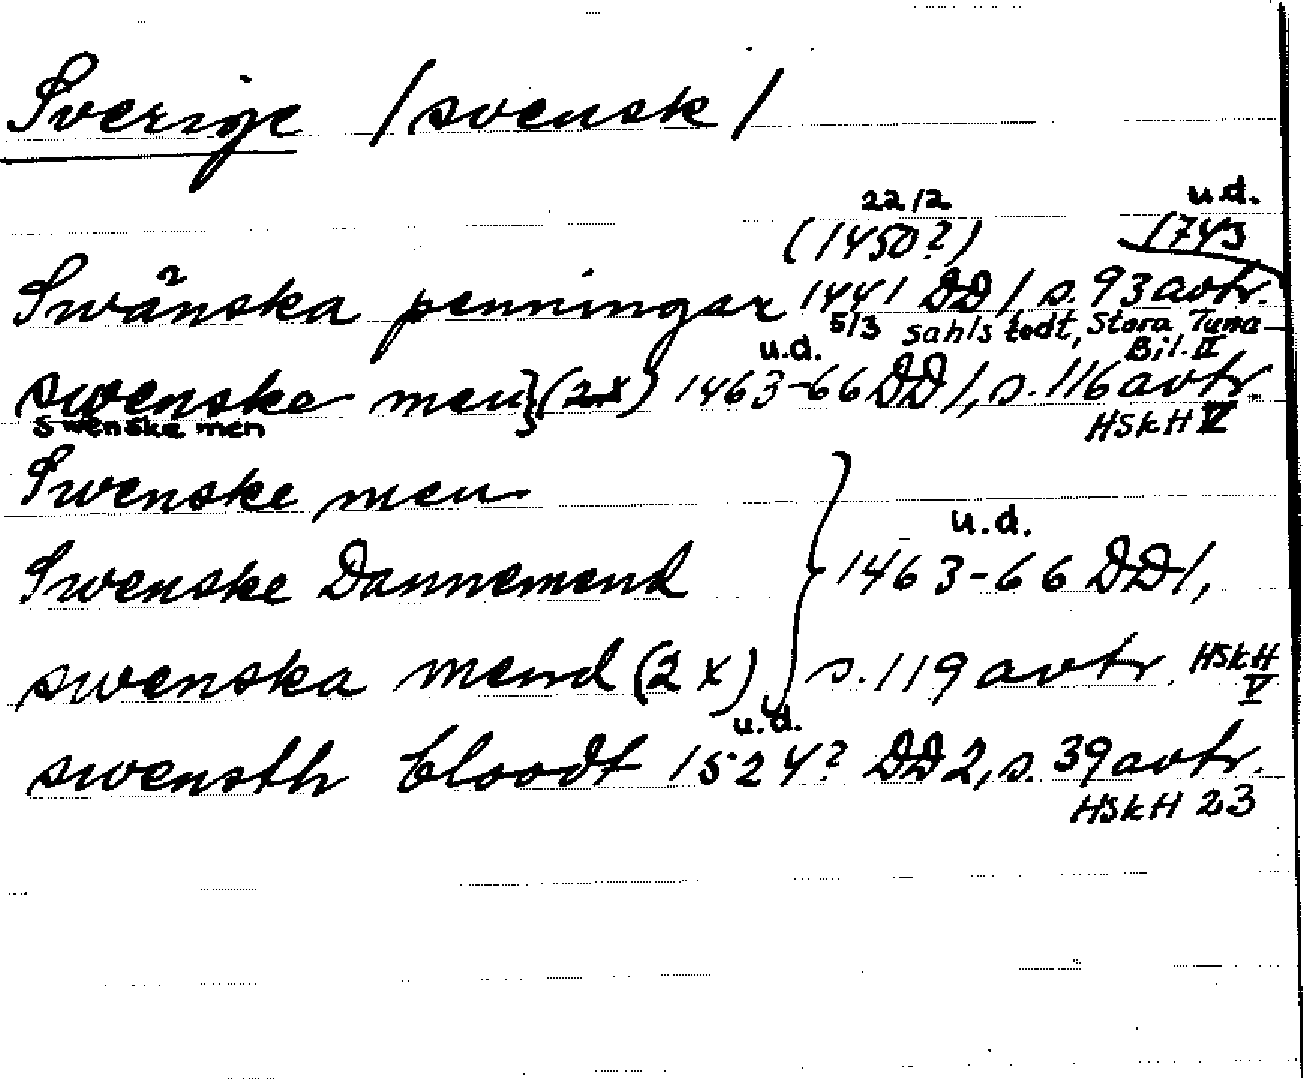 Sverige /svensk/
22/2 u.d.
(1450?) 1743
Swänska penningar 1441 DD1, s. 93 avtr.
5/3 Sahlstedt, Stora Tuna
Bil. II
u.d.
swenske men } (2x) 1463-66 DD1, s. 116 avtr.
swenske men HSkH V
Swenske men
u.d.
Swenske Dannemend 1463-66 DD1,
swenska mend (2x) s. 119 avtr. HSkH
V
u.d.
swensth bloodt 1524? DD2, s. 39 avtr.
HSkH 23